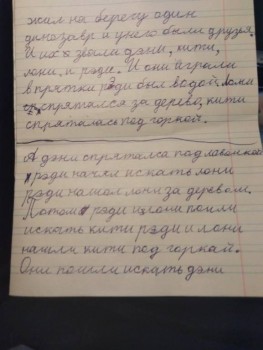 жил на берегу один
динозавр и у него были друзя.
И их звали дэни, кити,
лони, и рэди. И они играли
в прятки рэди был водой, лони
спрятался за дерево, кити
спряталась под горкой.
А дэни спрятался под лавочкой
рэди начял искать лони
рэди нашол лони за деревом.
Потом рэди и лони пошли
искать кити рэди и лони
нашли кити под горкай.
Они пошли искать дэни